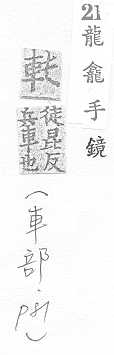 21 龍龕手鏡
軘
徒昆反
兵車也
(車部, p81)